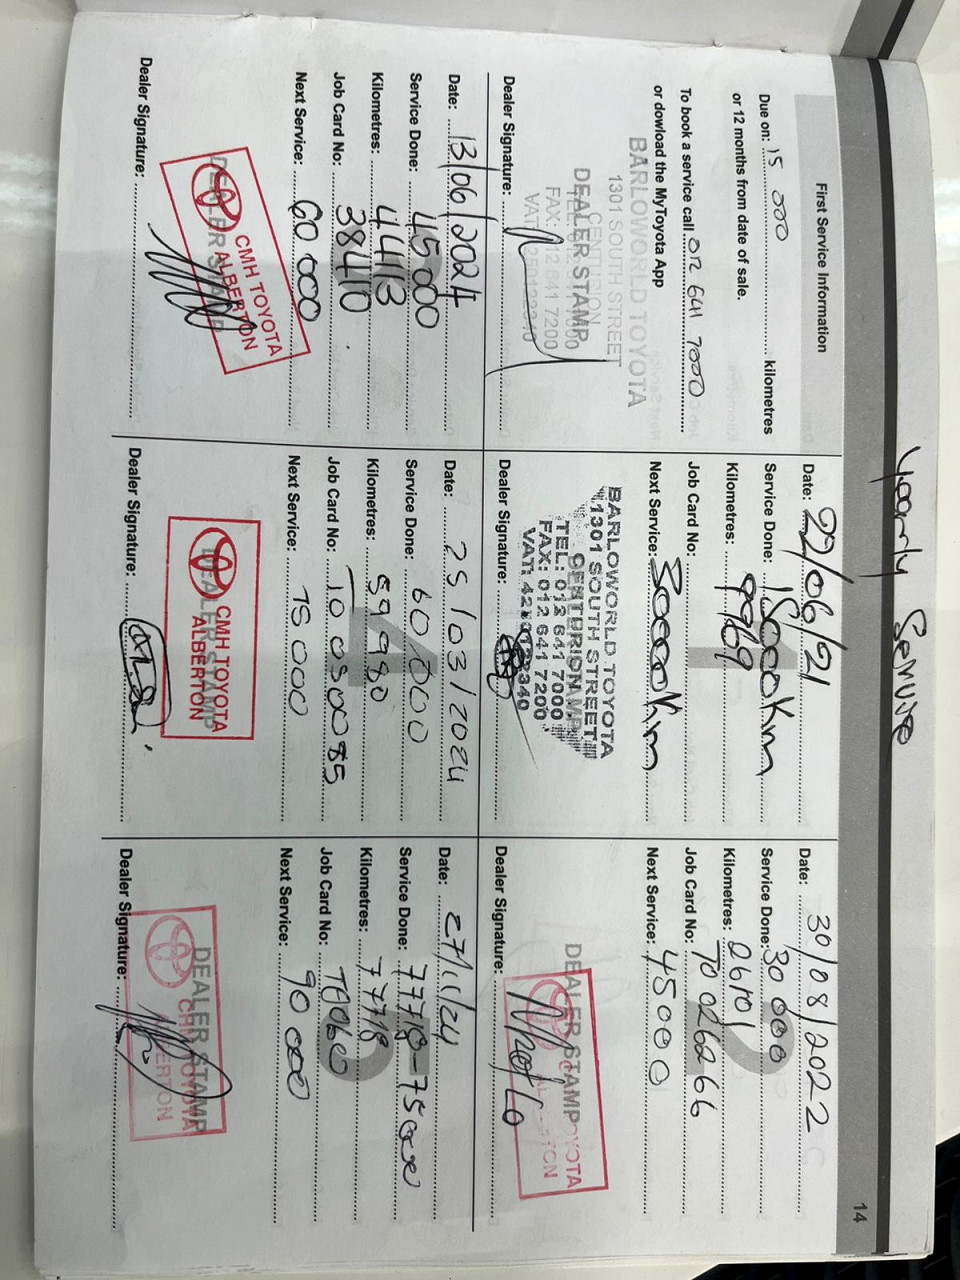 Yearly Service
14
First Service Information
Due on: 15 000 kilometres
or 12 months from date of sale.
To book a service call 012 641 7000
or dowload the MyToyota App
BARLOWORLD TOYOTA
1301 SOUTH STREET
CENTURION
DEALER STAMP
FAX: 012 641 7200
Dealer Signature:
Date: 22/06/21
Service Done: 15000Km
Kilometres: 9969
Job Card No:
Next Service: 30000Km
1
BARLOWORLD TOYOTA
1301 SOUTH STREET
CENTURION
TEL: 012 641 7000
FAX: 012 641 7200
Dealer Signature:
Date: 30/08/2022
Service Done: 30 000
Kilometres: 26101
Job Card No: 70 026266
Next Service: 45000
2
DEALER STAMP
Dealer Signature:
Date: 13/06/2024
Service Done: 45000
Kilometres: 44413
Job Card No: 38410
Next Service: 60 000
DEALER STAMP
CMH TOYOTA
ALBERTON
Dealer Signature:
Date: 25/03/2024
Service Done: 60 000
Kilometres: 59980
Job Card No: 10030085
Next Service: 75000
4
DEALER STAMP
CMH TOYOTA
ALBERTON
Dealer Signature:
Date: 27/11/24
Service Done: 77718-75000
Kilometres: 77718
Job Card No:
Next Service: 90 000
5
DEALER STAMP
CMH TOYOTA
ALBERTON
Dealer Signature: